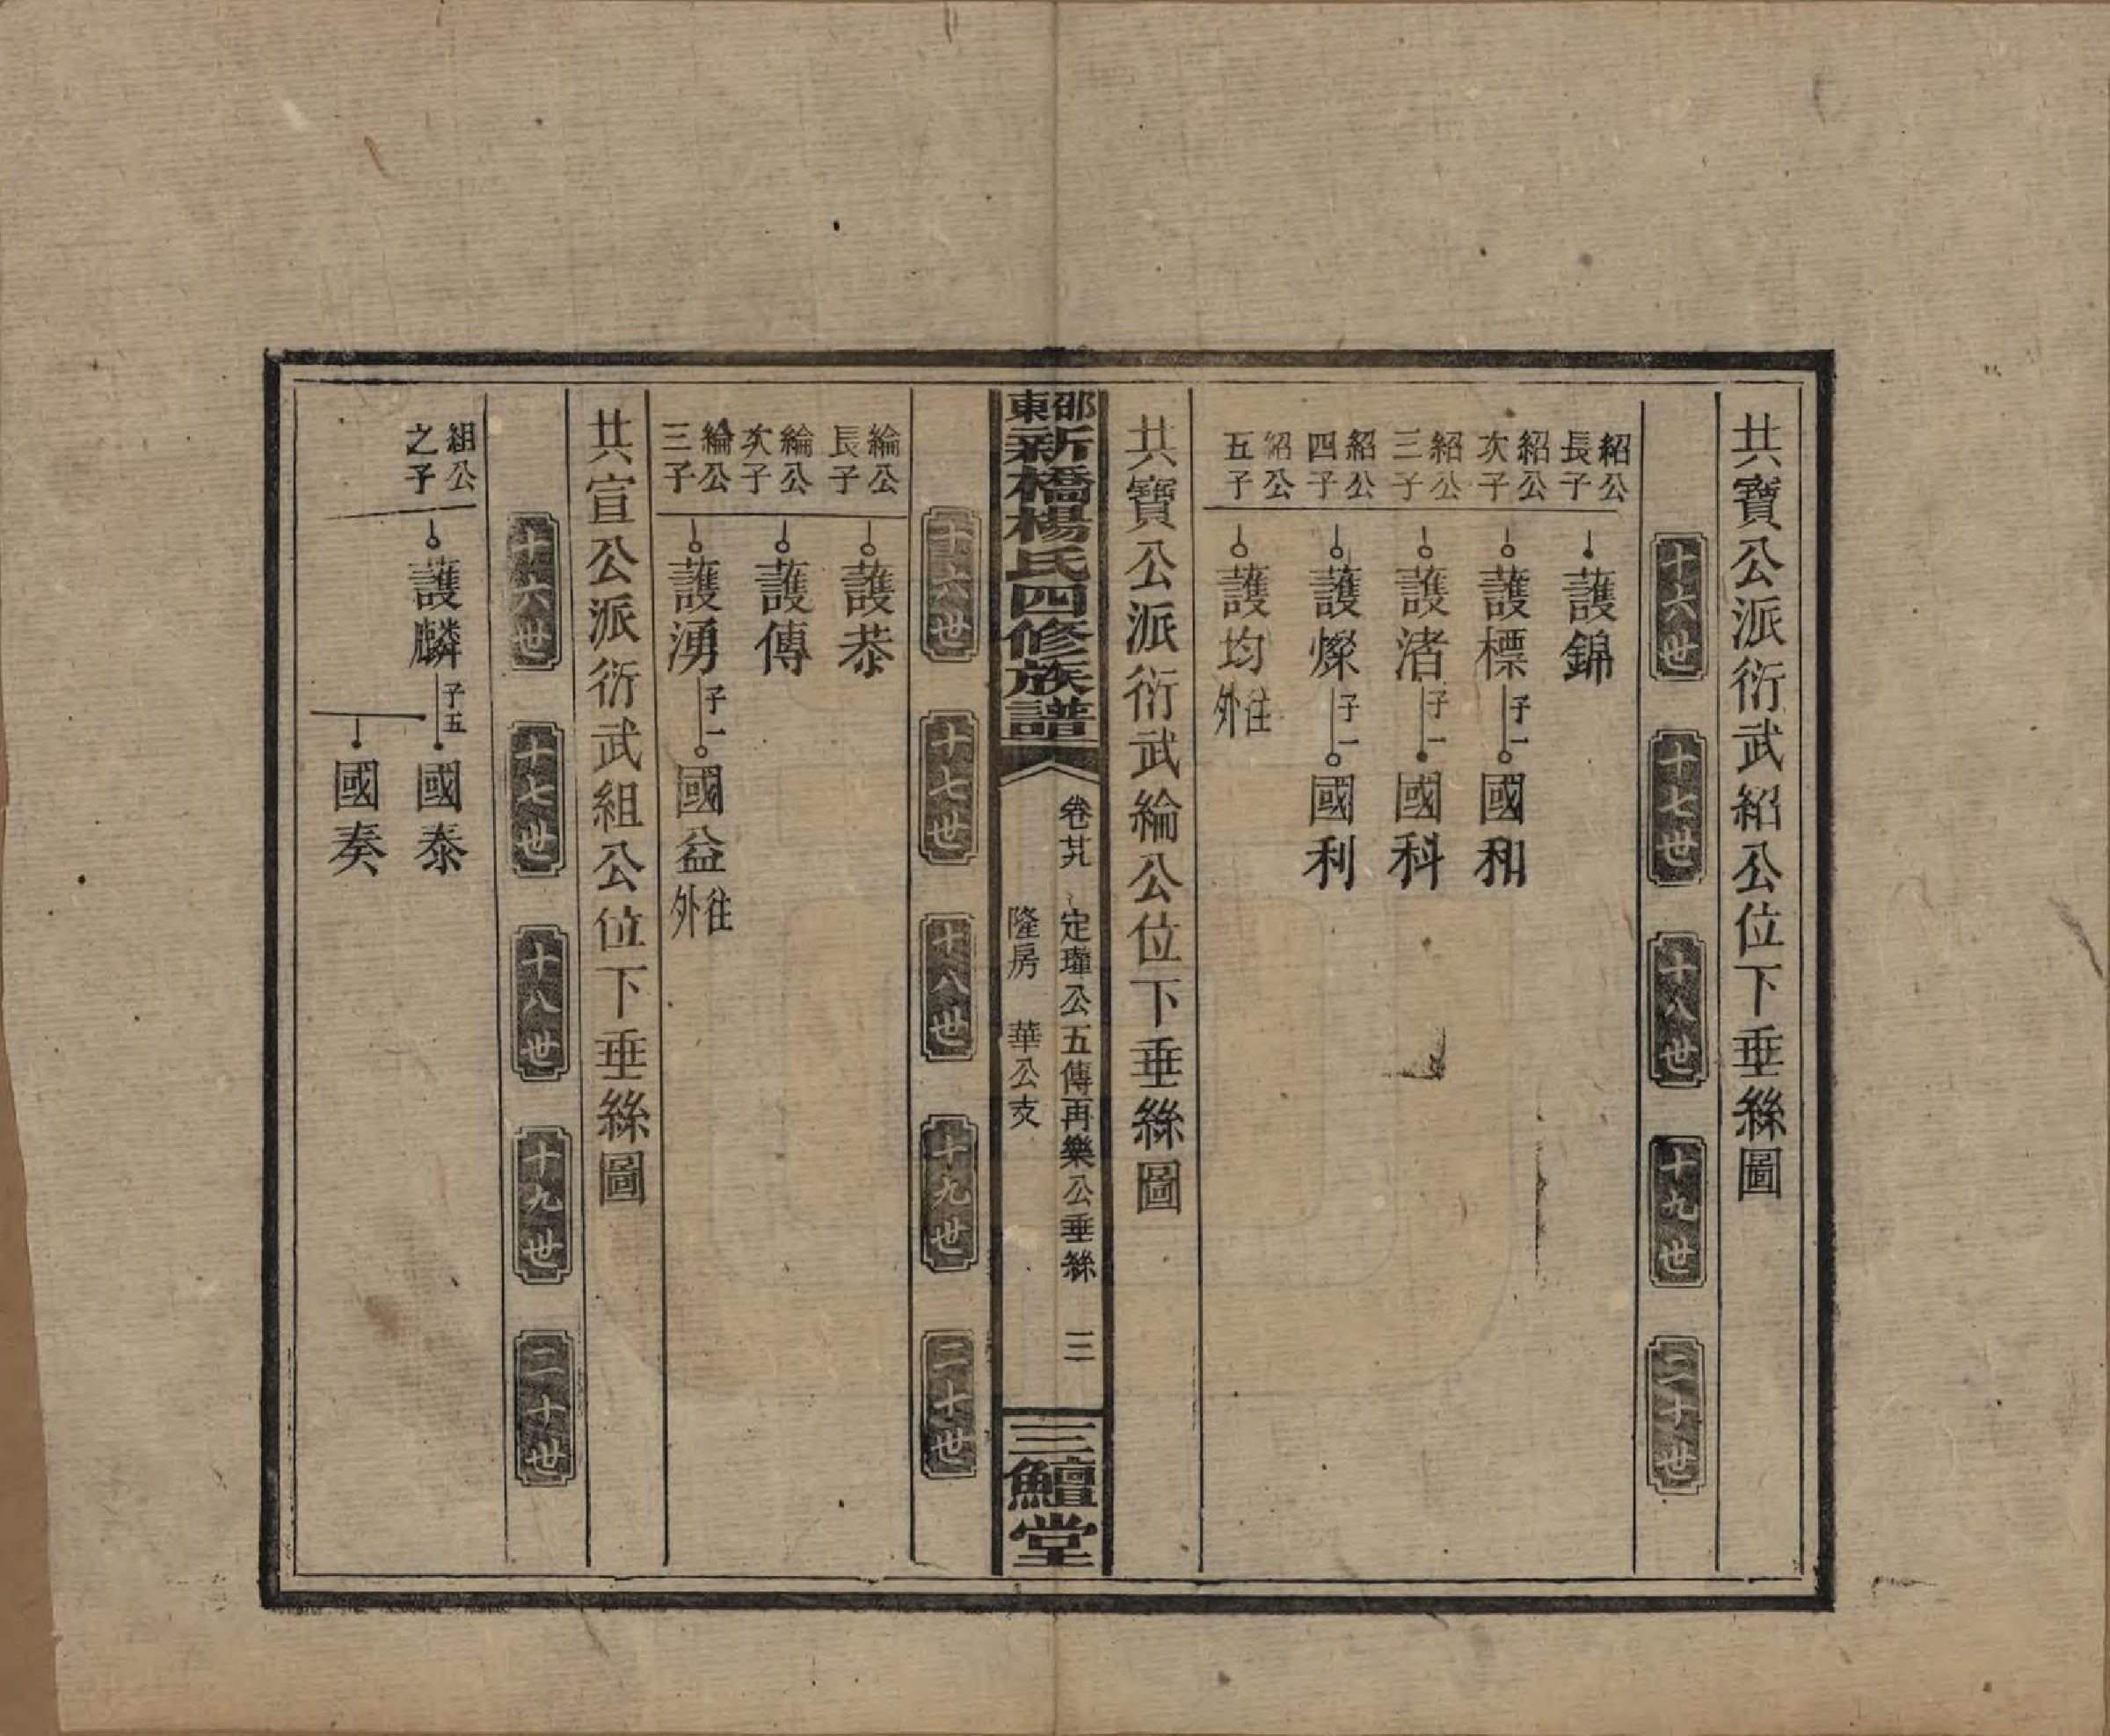 共寶公派衍武紹公位下垂絲圖
十六世 十七世 十八世 十九世 二十世
紹公長子 護錦
紹公次子 護標 子一 國和
紹公三子 護渚 子一 國科
紹公四子 護燦 子一 國利
紹公五子 護均 往外
共寶公派衍武綸公位下垂絲圖
邵東新橋楊氏四修族譜
卷廿九 定瓘公五傳再樂公垂絲 三
隆房 華公支
三鱣堂
十六世 十七世 十八世 十九世 二十世
綸公長子 護恭
綸公次子 護傳
綸公三子 護湧 子一 國益 往外
共宣公派衍武組公位下垂絲圖
十六世 十七世 十八世 十九世 二十世
組公之子 護麟 子五 國泰
國奏